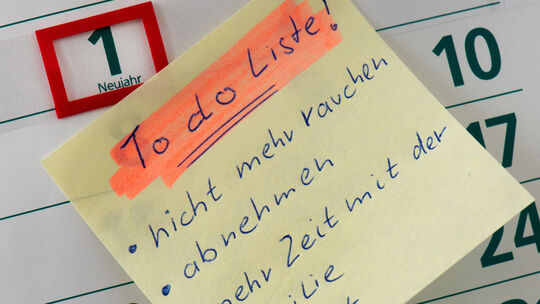 1
Neujahr
10
17
24
To do Liste!
• nicht mehr rauchen
• abnehmen
• mehr Zeit mit der